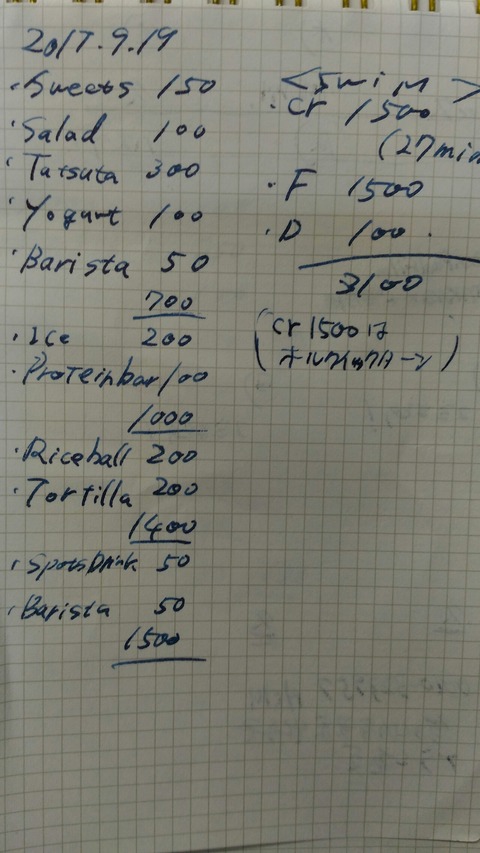 2017.9.19
・Sweets 150
・Salad 100
・Tatsuta 300
・Yogurt 100
・Barista 50
700
・Ice 200
・Proteinbar 100
1000
・Riceball 200
・Tortilla 200
1400
・SpotsDrink 50
・Barista 50
1500
<Swim>
・Cr 1500
(27min
・F 1500
・D 100.
3100
(Cr 1500は
オールクイックターン)